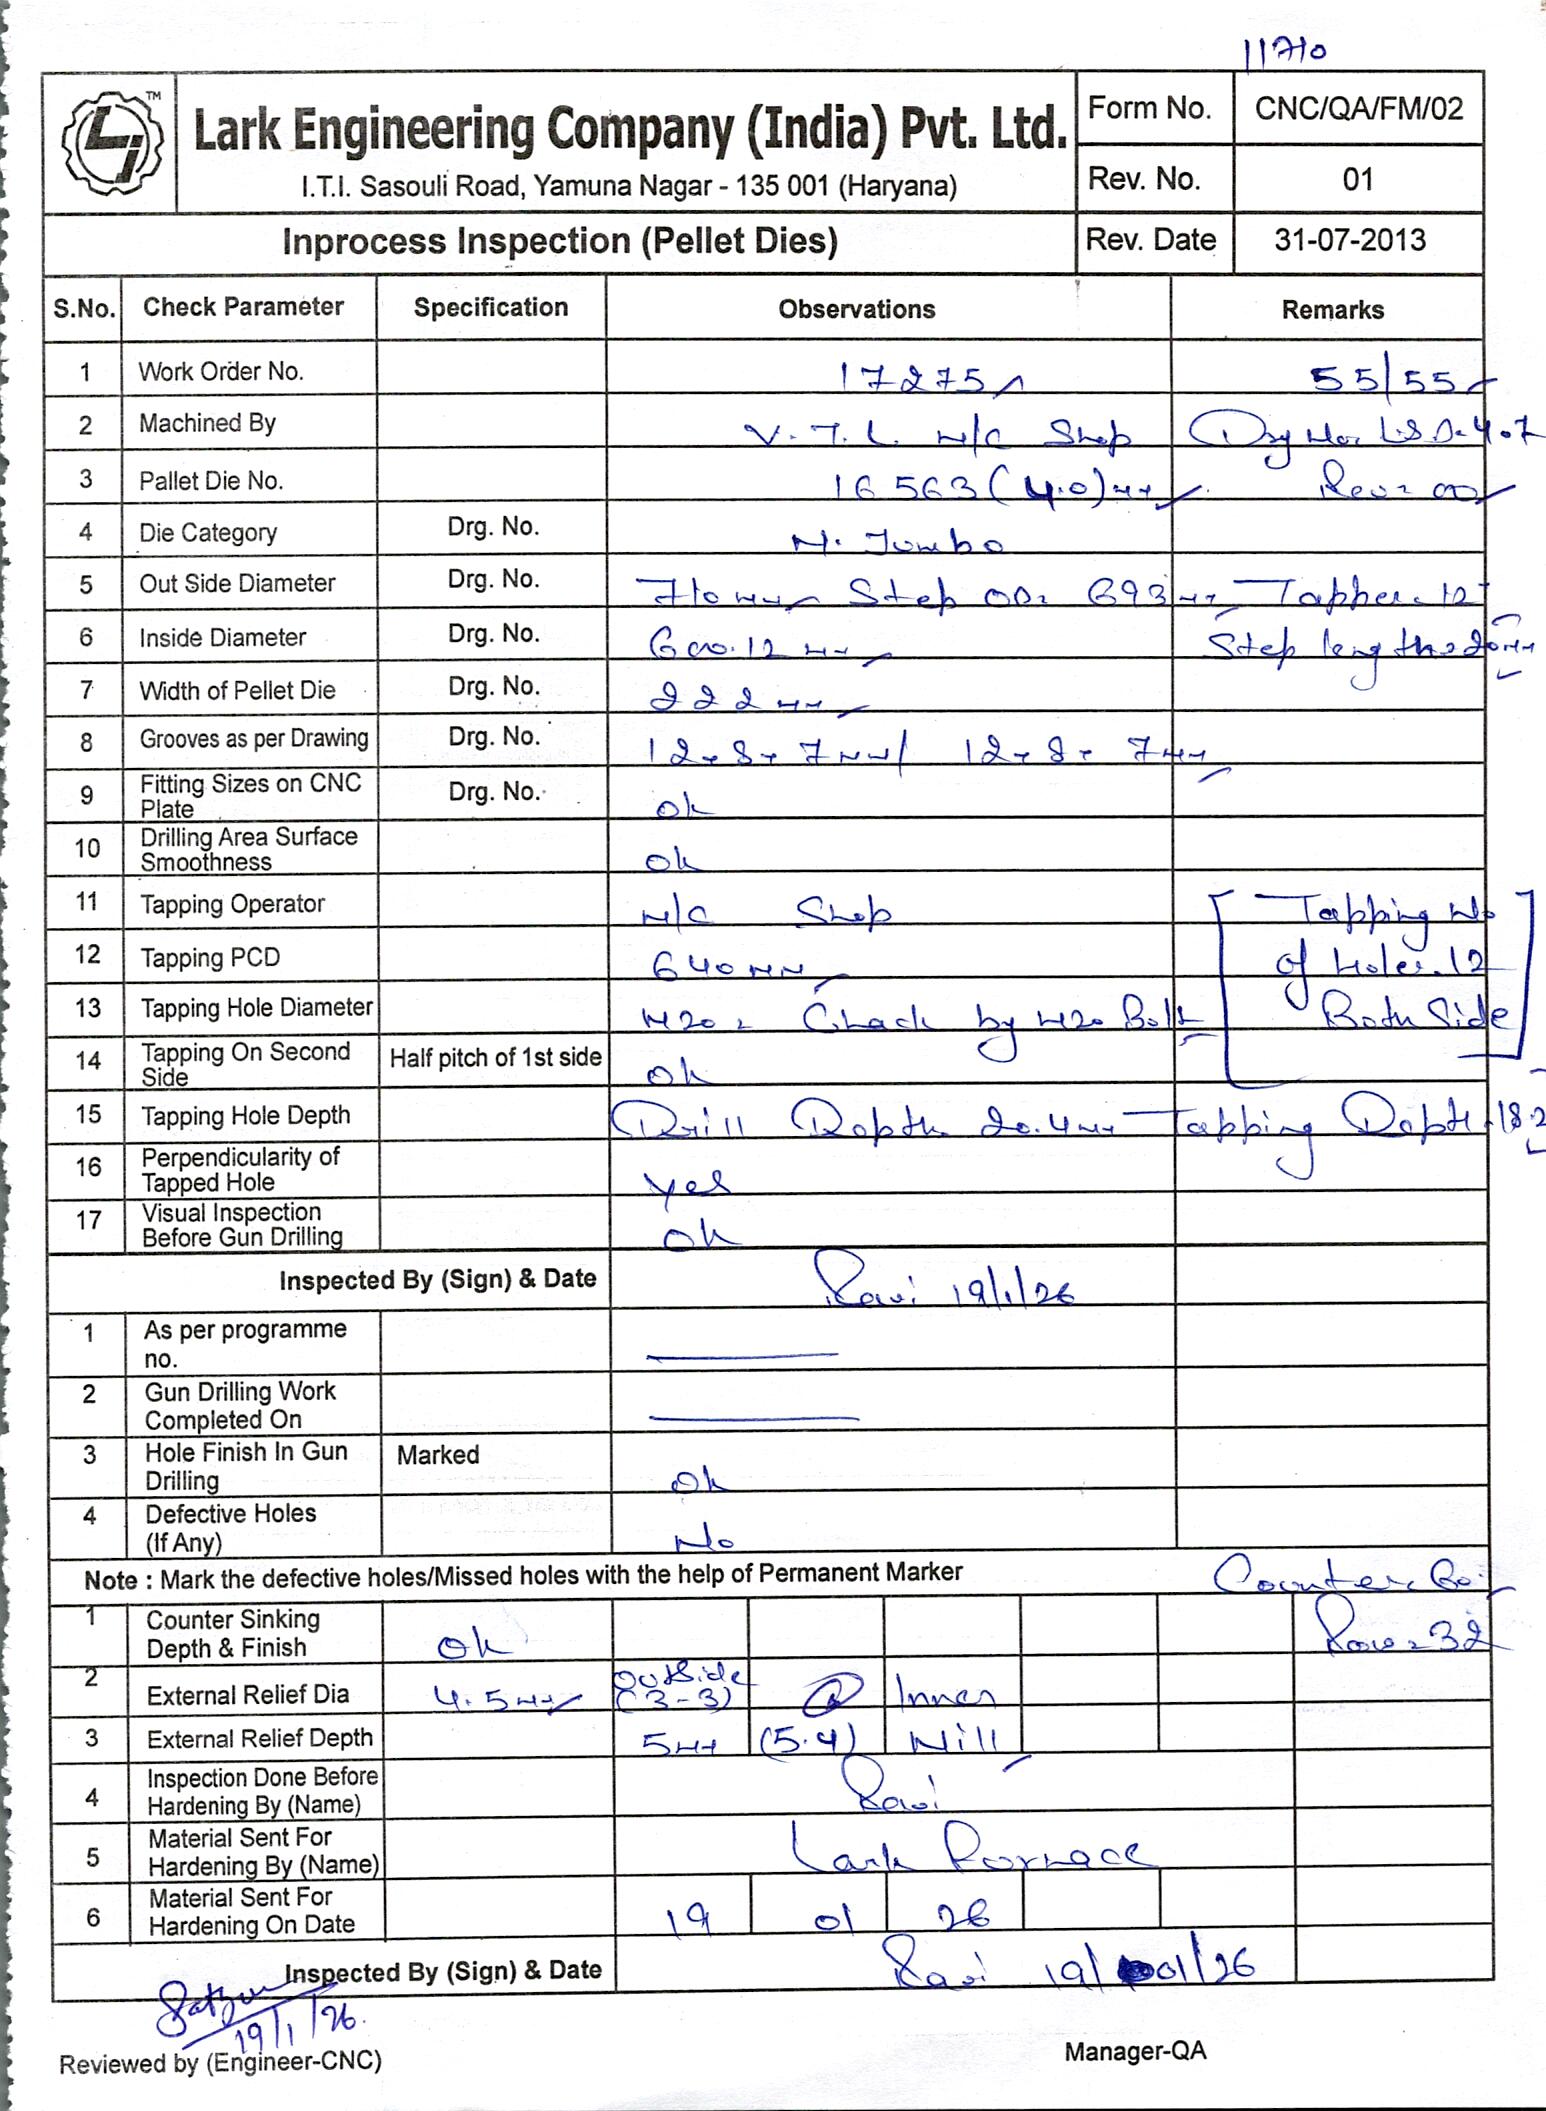 11710
LJ TM
Lark Engineering Company (India) Pvt. Ltd.
I.T.I. Sasouli Road, Yamuna Nagar - 135 001 (Haryana)
Form No. CNC/QA/FM/02
Rev. No. 01
Inprocess Inspection (Pellet Dies) Rev. Date 31-07-2013
S.No. Check Parameter Specification Observations Remarks
1 Work Order No. 17275 55/55
2 Machined By V.T.L. M/C Shop Drg No. LSD-407
3 Pallet Die No. 16563 (4.0)mm Rev=00
4 Die Category Drg. No. M. Jumbo
5 Out Side Diameter Drg. No. 710mm Step OD= 693mm Tapper-12
6 Inside Diameter Drg. No. 600.12mm Step length=20mm
7 Width of Pellet Die Drg. No. 222mm
8 Grooves as per Drawing Drg. No. 12x8x7mm/ 12x8x7mm
9 Fitting Sizes on CNC Plate Drg. No. Ok
10 Drilling Area Surface Smoothness Ok
11 Tapping Operator M/C Shop [Tapping No
12 Tapping PCD 640mm of Holes-12
13 Tapping Hole Diameter M20= Chack by M20 Bolt Both Side]
14 Tapping On Second Side Half pitch of 1st side Ok
15 Tapping Hole Depth Drill Dapth 20.4mm Tapping Dapth-18.2
16 Perpendicularity of Tapped Hole Yes
17 Visual Inspection Before Gun Drilling Ok
Inspected By (Sign) & Date Ravi 19/1/26
1 As per programme no.
2 Gun Drilling Work Completed On
3 Hole Finish In Gun Drilling Marked Ok
4 Defective Holes (If Any) No
Note : Mark the defective holes/Missed holes with the help of Permanent Marker Counter
1 Counter Sinking Depth & Finish Ok Row=32
2 External Relief Dia 4.5mm Outside (3-3) Inner
3 External Relief Depth 5mm (5.4) Nill
4 Inspection Done Before Hardening By (Name) Ravi
5 Material Sent For Hardening By (Name) Lark Fornace
6 Material Sent For Hardening On Date 19 01 26
Inspected By (Sign) & Date Ravi 19/01/26
19/1/26.
Reviewed by (Engineer-CNC) Manager-QA